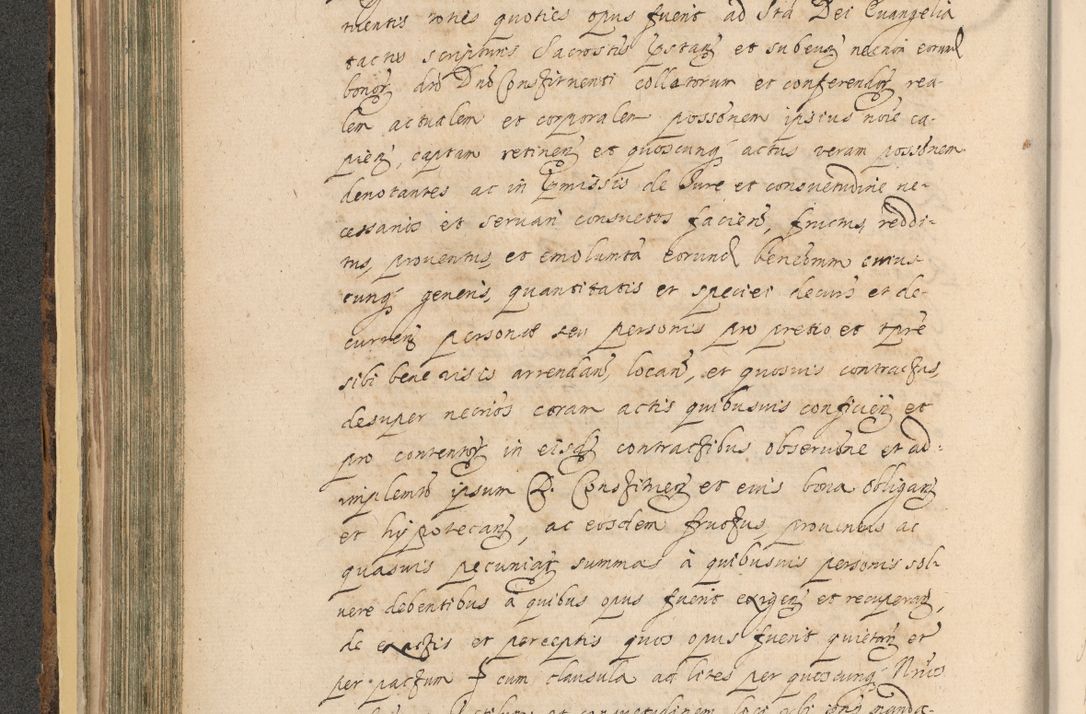 mentis tonis quoties opus fuerit ad Sta Dei Evangelia
tactis scripturis Sacrostis et subeun necnon eorund
bonor dto Dno Constituenti collatorum et conferendor rea-
lem actualem et corporalem possonem ipsius noie ca-
pien, captam retinen et quoscunq actus veram possonem
denotantes ac in pmissis de Jure et consuetudine ne-
cessarios et servari consuetos facien, fructus, reddi-
tus, proventus, et emolumta eorund beneorum cuius-
cunq generis, quantitatis et speciei decurs et de-
curren personae seu personis pro pretio et tpre
sibi bene visis arrendan, locan, et quosuis contractus,
desuper necrios coram actis quibusuis conficien et
pro contentor in eisd contractibus observone et ad-
implemto ipsum D. Constituen et euis bona obligan
et hypotecan, ac eosdem fructus, prouentus ac
quasuis pecuniar summas à quibusuis personis sol-
uere debentibus à quibus opus fuerit exigen et recuperan,
de exactis et perceptis quos opus fuerit quietan et
per pactum cum clausula ad lites per quoscunq Nrios